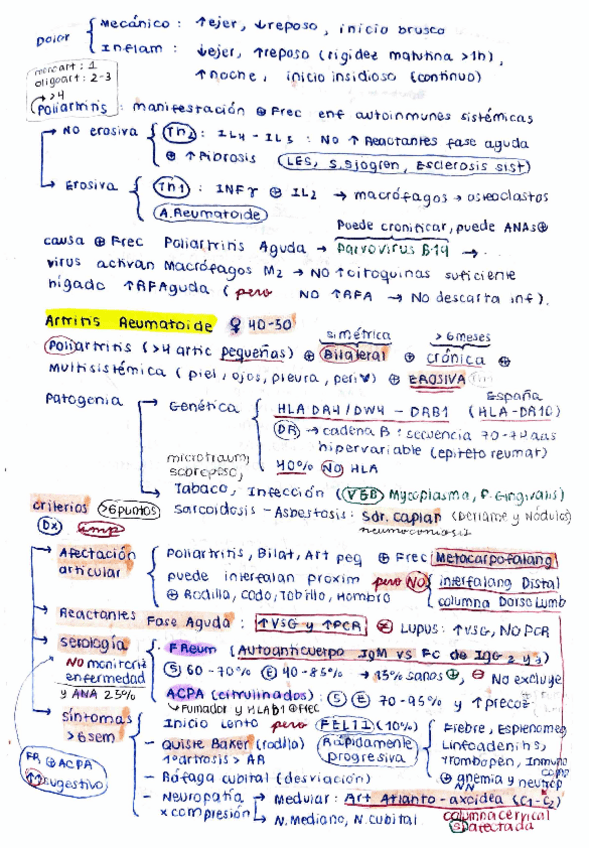 Dolor { Mecánico : ↑ejer, ↓reposo, inicio brusco
Inflam : ↓ejer, ↑reposo (rigidez matutina >1h),
↑noche, inicio insidioso (continuo)
monoart : 1
oligoart : 2-3
>4
Poliartritis : manifestación ⊕ Frec enf autoinmunes sistémicas
→ No erosiva { Th2 : IL4 - IL5 : No ↑ Reactantes fase aguda
⊕ ↑ Fibrosis (LES, S. Sjogren, Esclerosis sist)
→ Erosiva { Th1 : INFγ ⊕ IL2 → macrófagos → osteoclastos
A. Reumatoide
Puede cronificar, puede ANAs⊕
causa ⊕ Frec Poliartritis Aguda → Parvovirus B19 →
virus activan Macrófagos M2 → NO ↑citoquinas suficiente
hígado ↑RFAguda (pero NO ↑RFA → No descarta inf).
Artritis Reumatoide ♀ 40-50
simétrica > 6 meses
Poliartritis (>4 artic pequeñas) ⊕ Bilateral ⊕ crónica ⊕
Multisistémica (piel, ojos, pleura, peri♥) ⊕ EROSIVA
España
Patogenia → Genética { HLA DR4/DW4 - DRB1 (HLA-DR10)
DR → cadena B : secuencia 70-74 aas
hipervariable (epíteto reumat)
40% NO HLA
microtraum,
Tabaco, Infección (VEB, Mycoplasma, P. Gingivalis)
Sarcoidosis - Asbestosis : Sdr. Caplan (Derrame y Nódulos)
neumoconiosis
criterios >6puntos
Dx imp
→ Afectación articular { Poliartritis, Bilat, Art peq ⊕ Frec Metacarpofalang
puede interfalan proxim pero NO { interfalang Distal
⊕ Rodilla, codo, tobillo, Hombro columna DorsoLumb
→ Reactantes Fase Aguda : ↑VSG y ↑PCR Lupus : ↑VSG, NO PCR
→ serología { FReum (Autoanticuerpo IgM vs FC de IgG 2 y 3)
NO monitoriz enfermedad
y ANA 25%
S 60-70% E 40-85% → 15% sanos ⊕, ⊖ No excluye
ACPA (citrulinados) : S E 70-95% y ↑precoz
↳ Fumador y HLAB1 ⊕Frec
→ síntomas >6sem { Inicio Lento pero FELTI (10%) { Fiebre, Esplenomeg
Linfoadenitis,
Trombopen, Inmuno
⊕ anemia y neutrop
- Quiste Baker (rodilla) Rápidamente progresiva
1º artrosis > AR
- Ráfaga cubital (desviación)
- Neuropatía x compresión → Medular : Art Atlanto-axoidea (C1-C2)
→ N. Mediano, N. cubital
columna cervical
sí afectada
FR ⊕ ACPA
↑↑ sugestivo